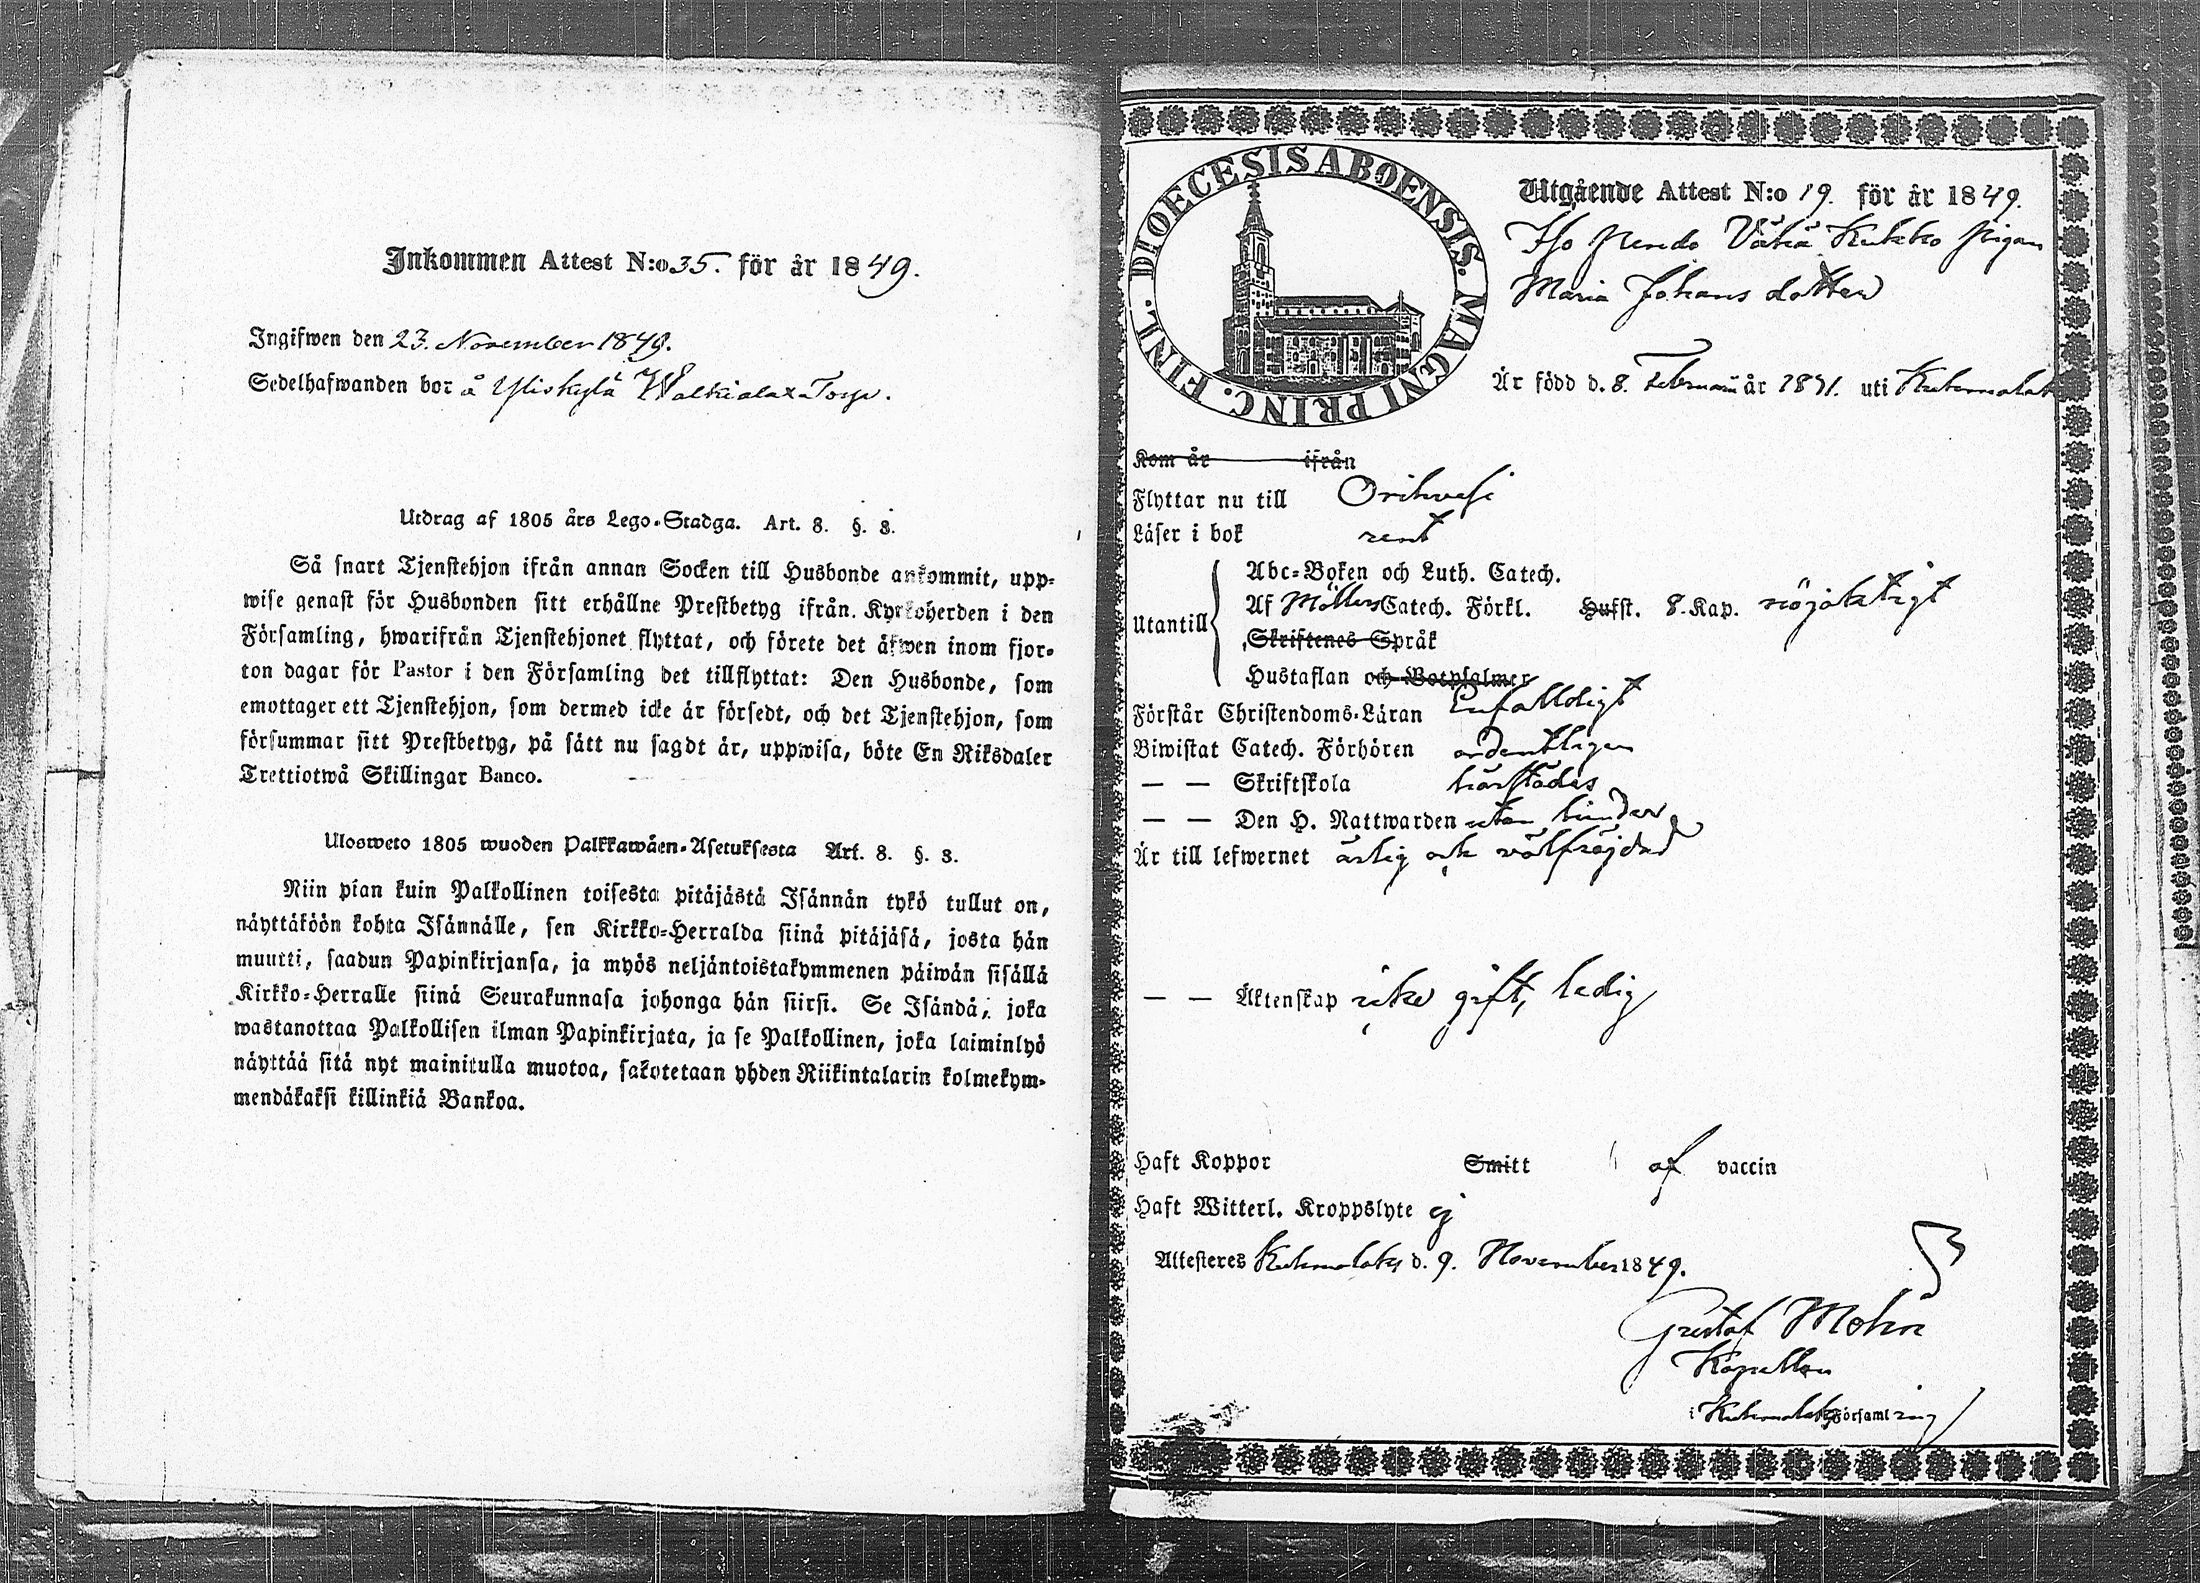 Inkommen Attest N:o 35. för år 1849.
Ingifwen den 23. November 1849.
Sedelhafwanden bor å Yliskylä Walkiala Torp.
Utdrag af 1805 års Lego-Stadga. Art. 8. §. 3.
Så snart Tjenstehjon ifrån annan Socken till Husbonde ankommit, upp-
wise genast för Husbonden sitt erhållne Prestbetyg ifrån Kyrkoherden i den
Församling, hwarifrån Tjenstehjonet flyttat, och förete det äfwen inom fjor-
ton dagar för Pastor i den Församling det tillflyttat: Den Husbonde, som
emottager ett Tjenstehjon, som dermed icke är försedt, och det Tjenstehjon, som
försummar sitt Prestbetyg, på sätt nu sagdt är, uppwisa, böte En Riksdaler
Trettiotwå Skillingar Banco.
Ulosweto 1805 wuoden Palkkawäen-Asetuksesta Art. 8. §. 3.
Niin pian kuin Palkollinen toisesta pitäjästä Isännän tykö tullut on,
näyttäköön kohta Isännälle, sen Kirkko-Herralda siinä pitäjäsä, josta hän
muutti, saadun Papinkirjansa, ja myös neljäntoistakymmenen päiwän sisällä
Kirkko-Herralle siinä Seurakunnasa johonga hän siirsi. Se Isändä, joka
wastanottaa Palkollisen ilman Papinkirjata, ja se Palkollinen, joka laiminlyö
näyttää sitä nyt mainitulla muotoa, sakotetaan yhden Riikintalarin kolmekym-
mendäkaksi killinkiä Bankoa.
DIOECESIS ABOENSIS. MAGNI PRINC. FINL.
Utgående Attest N:o 19. för år 1849.
Iso Vähä Kukko Pigan
Maria Johans dotter
Är född d. 8. Februarii år uti Kuhmalaks
Kom år ifrån
Flyttar nu till Orihvesi
Läser i bok rent
Utantill
Abc-Boken och Luth. Catech.
Af Möllers Catech. Förkl. Hufst. 8. Kap. nöjaktigt
Skriftenes Språk
Hustaflan och Botpsalmer
Förstår Christendoms-Läran Enfalldigt
Biwistat Catech. Förhören ordentligen
— — Skriftskola härstädes
— — Den H. Nattwarden utan hinder
Är till lefwernet ärlig och välfrejdad
— — Äktenskap icke gift, ledig
Haft Koppor Smitt af vaccin
Haft Witterl. Kroppslyte ej
Attesteres Kuhmalaks d. 9. November 1849.
Gustaf Mohn
Kapellan
i Kuhmalaks Församling